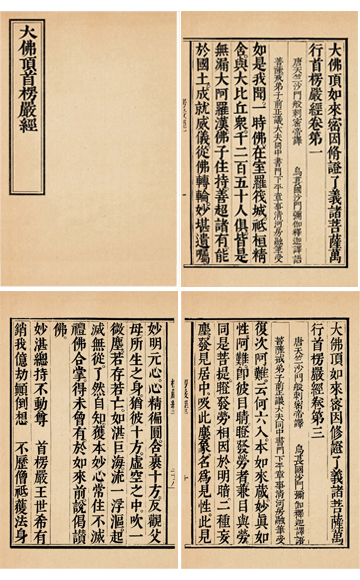 大佛頂首楞嚴經
大佛頂如來密因修證了義諸菩薩萬
行首楞嚴經卷第一
唐天竺沙門般剌密帝譯
烏萇國沙門彌伽釋迦譯語
菩薩戒弟子前正議大夫同中書門下平章事清河房融筆受
如是我聞。一時佛在室羅筏城祇桓精
舍與大比丘眾千二百五十人俱皆是
無漏大阿羅漢佛子住持善超諸有能
於國土成就威儀從佛轉輪妙堪遺囑
妙明元心心精徧圓含裹十方反觀父
母所生之身猶彼十方虛空之中吹一
微塵若存若亡如湛巨海流一浮漚起
滅無從了然自知獲本妙心常住不滅
禮佛合掌得未曾有於如來前說偈讚
佛。
妙湛總持不動尊 首楞嚴王世希有
銷我億劫顛倒想 不歷僧祇獲法身
大佛頂如來密因修證了義諸菩薩萬
行首楞嚴經卷第三
唐天竺沙門般剌密帝譯
烏萇國沙門彌伽釋迦譯語
菩薩戒弟子前正議大夫同中書門下平章事清河房融筆受
復次阿難云何六入本如來藏妙真如
性阿難即彼目睛瞪發勞者兼目與勞
同是菩提瞪發勞相因於明暗二種妄
塵發見居中吸此塵象名為見性此見